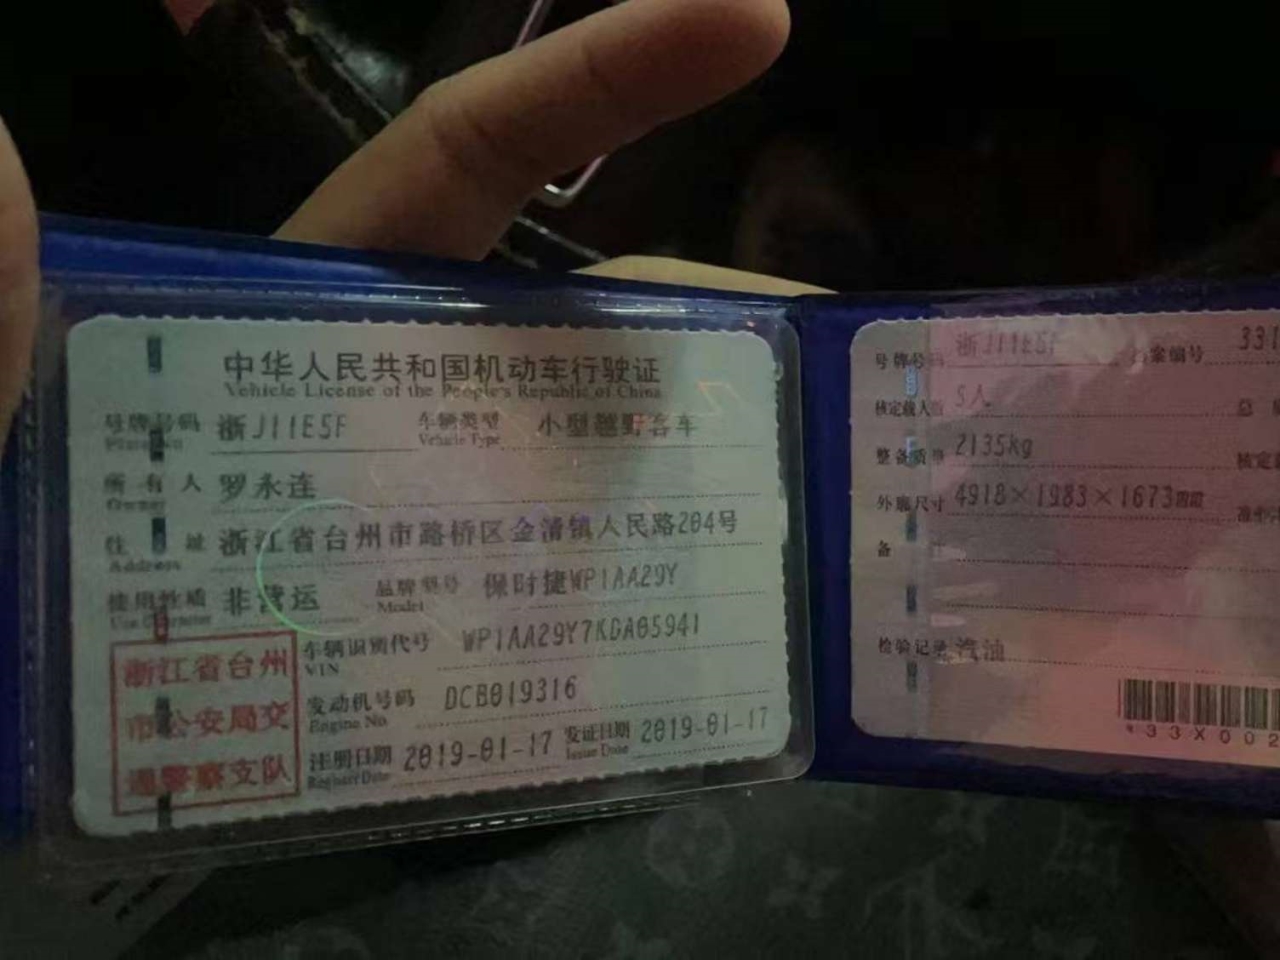 中华人民共和国机动车行驶证
Vehicle License of the People's Republic of China
号牌号码 浙J11E5F 车辆类型 小型越野客车
Vehicle Type
所有人 罗永连
Owner
住址 浙江省台州市路桥区金清镇人民路204号
Address
使用性质 非营运 品牌型号 保时捷WP1AA29Y
Use Character Model
浙江省台州
市公安局交
通警察支队
车辆识别代号 WP1AA29Y7KDA05941
VIN
发动机号码 DCB019316
Engine No
注册日期 2019-01-17 发证日期 2019-01-17
Register Date Issue Date
号牌号码 浙J11E5F 档案编号 331
核定载人数 5人 总
整备质量 2135kg 核定
外廓尺寸 4918×1983×1673
备
检验记录 汽油
*33X002